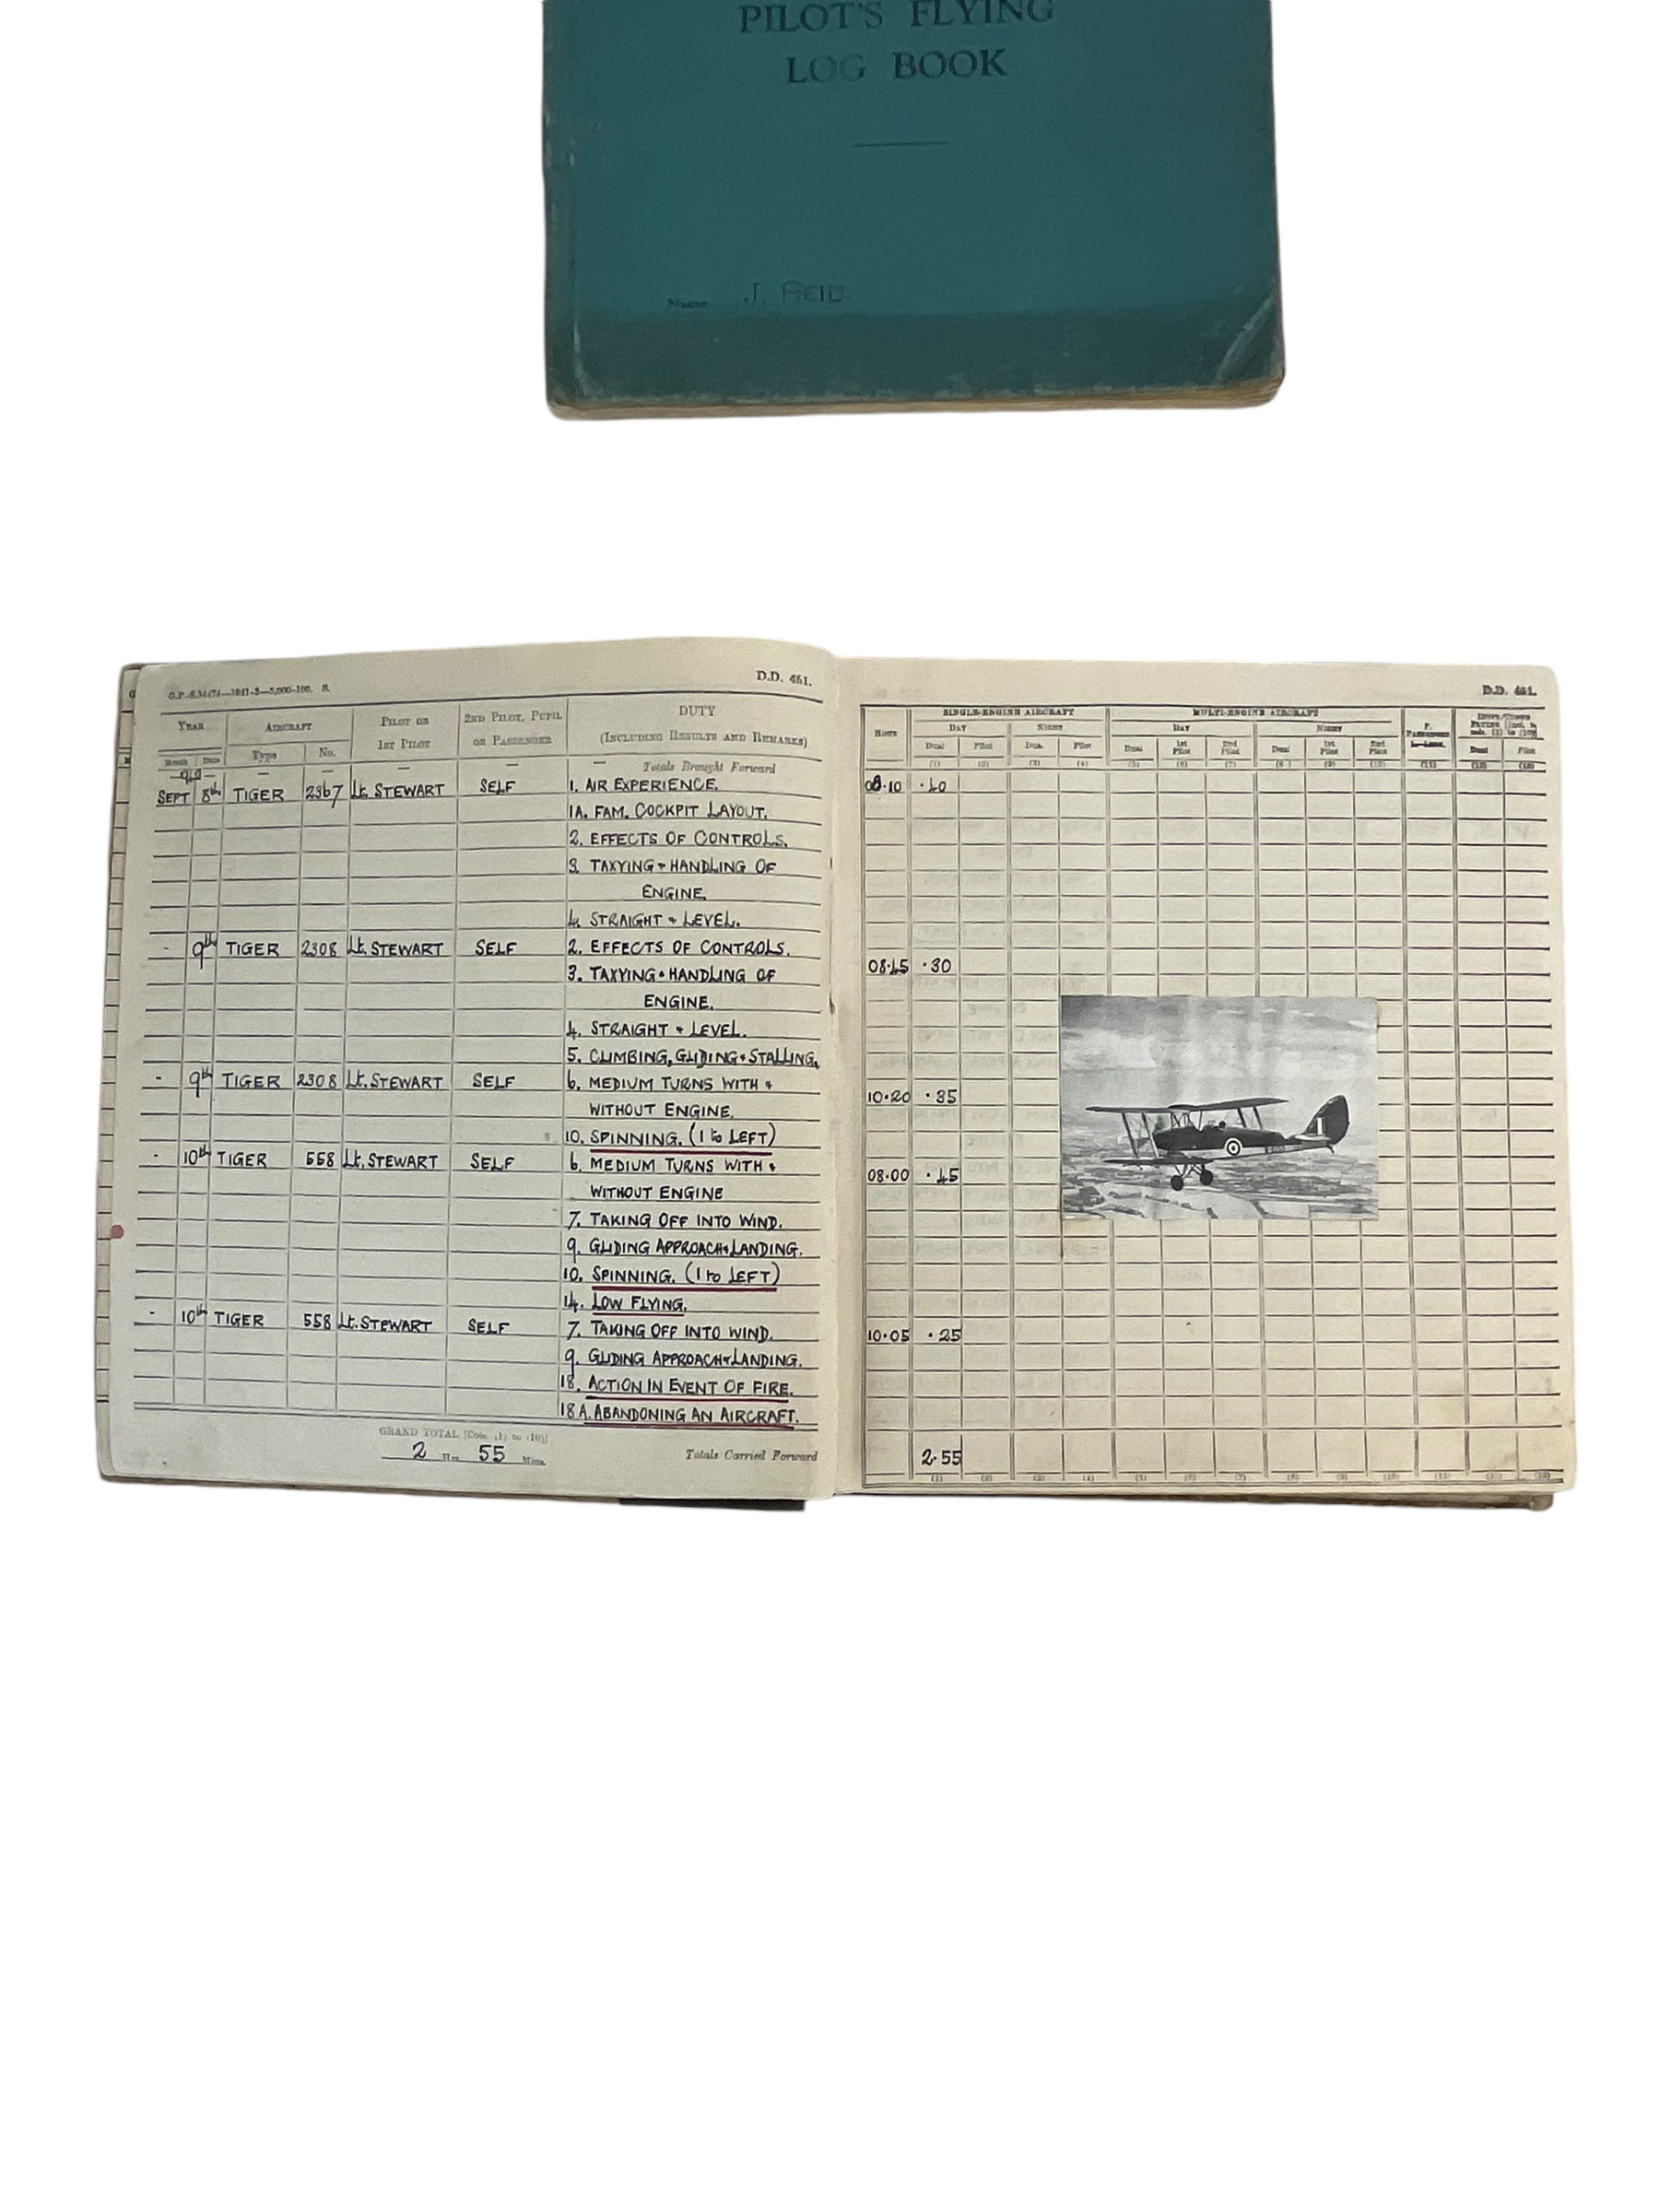 PILOT'S FLYING
LOG BOOK
Name J. REID
G.P.-S.34474—1941-2—5,000-100. S. D.D. 461.
YEAR AIRCRAFT PILOT OR 2ND PILOT, PUPIL DUTY
Month Date Type No. 1ST PILOT OR PASSENGER (INCLUDING RESULTS AND REMARKS)
— — — — — Totals Brought Forward
SEPT 8th TIGER 2367 Lt. STEWART SELF 1. AIR EXPERIENCE.
1A. FAM. COCKPIT LAYOUT.
2. EFFECTS OF CONTROLS.
3. TAXYING + HANDLING OF
ENGINE.
4. STRAIGHT + LEVEL.
- 9th TIGER 2308 Lt. STEWART SELF 2. EFFECTS OF CONTROLS.
3. TAXYING + HANDLING OF
ENGINE.
4. STRAIGHT + LEVEL.
5. CLIMBING, GLIDING + STALLING.
- 9th TIGER 2308 Lt. STEWART SELF 6. MEDIUM TURNS WITH +
WITHOUT ENGINE.
10. SPINNING. (1 to LEFT)
- 10th TIGER 558 Lt. STEWART SELF 6. MEDIUM TURNS WITH +
WITHOUT ENGINE
7. TAKING OFF INTO WIND.
9. GLIDING APPROACH + LANDING.
10. SPINNING. (1 to LEFT)
14. LOW FLYING.
- 10th TIGER 558 Lt. STEWART SELF 7. TAKING OFF INTO WIND.
9. GLIDING APPROACH + LANDING.
18. ACTION IN EVENT OF FIRE.
18 A. ABANDONING AN AIRCRAFT.
GRAND TOTAL [Cols. (1) to (10)]
2 Hrs. 55 Mins. Totals Carried Forward
D.D. 461.
SINGLE-ENGINE AIRCRAFT MULTI-ENGINE AIRCRAFT
HOUR DAY NIGHT DAY NIGHT PASSENGER
Dual Pilot Dual Pilot Dual 1st Pilot 2nd Pilot Dual 1st Pilot 2nd Pilot Dual Pilot
(1) (2) (3) (4) (5) (6) (7) (8) (9) (10) (11) (12) (13)
08·10 ·40
08·45 ·30
10·20 ·35
08·00 ·45
10·05 ·25
2·55
(1) (2) (3) (4) (5) (6) (7) (8) (9) (10) (11) (12) (13)